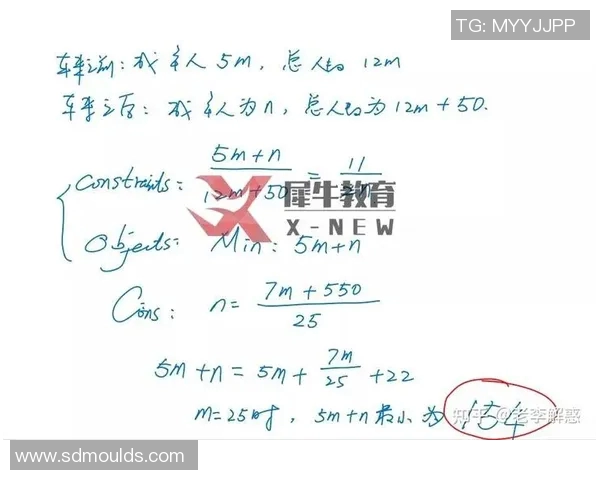 TG: MYYJJPP
车来之前: 成年人 5m, 总人口 12m
车来之后: 成年人为 n, 总人口为 12m + 50.
Constraints: (5m+n)/(12m+50) = 11/25
Objects: Min: 5m+n
犀牛教育
X-NEW
Cons: n = (7m+550)/25
5m+n = 5m + 7m/25 + 22
m=25时, 5m+n 最小为 154
知乎 @老李解惑
www.sdmoulds.com